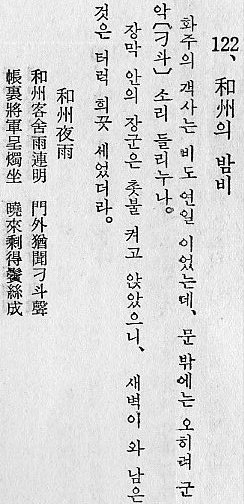 122、和州의 밤비
화주의 객사는 비도 연일 이었는데、문 밖에는 오히려 군
악〔刁斗〕 소리 들리누나。
장막 안의 장군은 촛불 켜고 앉았으니、 새벽이 와 남은
것은 터럭 희끗 세었더라。
和州夜雨
和州客舍雨連明　門外猶聞刁斗聲
帳裏將軍呈燭坐　曉來剩得鬢絲成